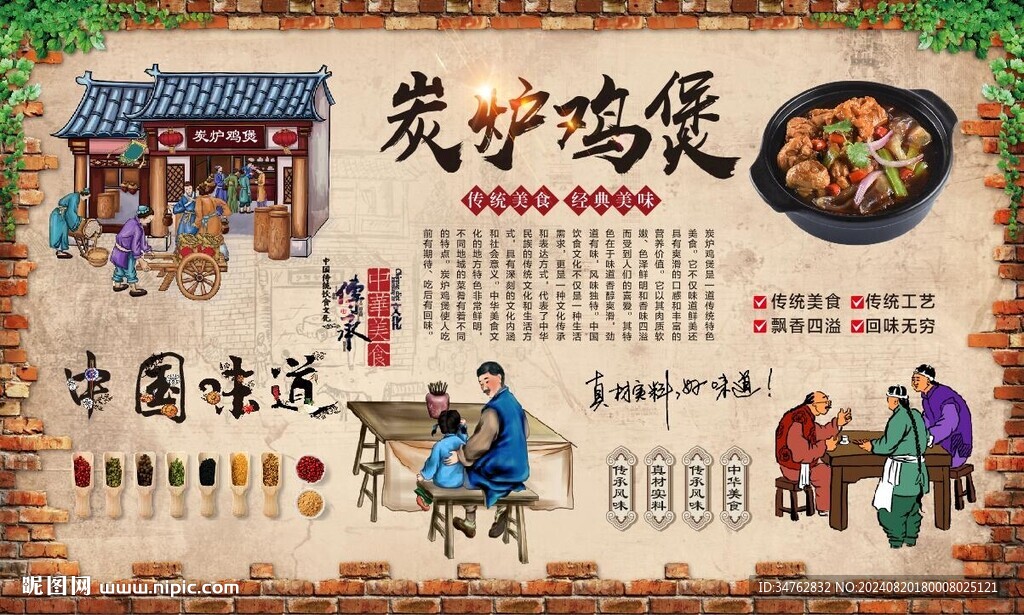 炭炉鸡煲
炭炉鸡煲
传统美食 经典美味
炭炉鸡煲是一道传统特色
美食。它不仅味道鲜美还
具有爽滑的口感和丰富的
营养价值。它以其肉质软
嫩、色泽鲜明和香味四溢
而受到人们的喜爱。其特
色在于味道香醇爽滑，劲
道有味，风味独特。中国
饮食文化不仅是一种生活
需求，更是一种文化传承
和表达方式，代表了中华
民族的传统文化和生活方
式，具有深刻的文化内涵
和社会意义。中华美食文
化的地方特色非常鲜明，
不同地域的菜肴有着不同
的特点。炭炉鸡煲使人吃
前有期待、吃后有回味。
传统美食
传统工艺
飘香四溢
回味无穷
中国传统饮食文化
传承
中華美食
文化
中国味道
真材实料，好味道！
传承风味
真材实料
传承风味
中华美食
昵图网 www.nipic.com
ID:34762832 NO:20240820180008025121